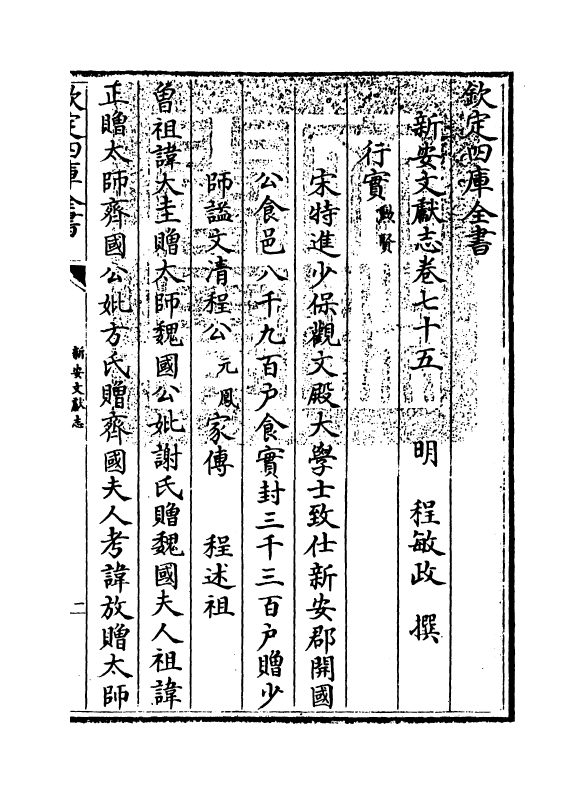 欽定四庫全書
新安文獻志卷七十五 明 程敏政 撰
行實 勲賢
宋特進少保觀文殿大學士致仕新安郡開國
公食邑八千九百户食實封三千三百户贈少
師諡文清程公元鳳家傳 程述祖
曾祖諱大圭贈太師魏國公妣謝氏贈魏國夫人祖諱
正贈太師齊國公妣方氏贈齊國夫人考諱放贈太師
欽定四庫全書
新安文獻志
二